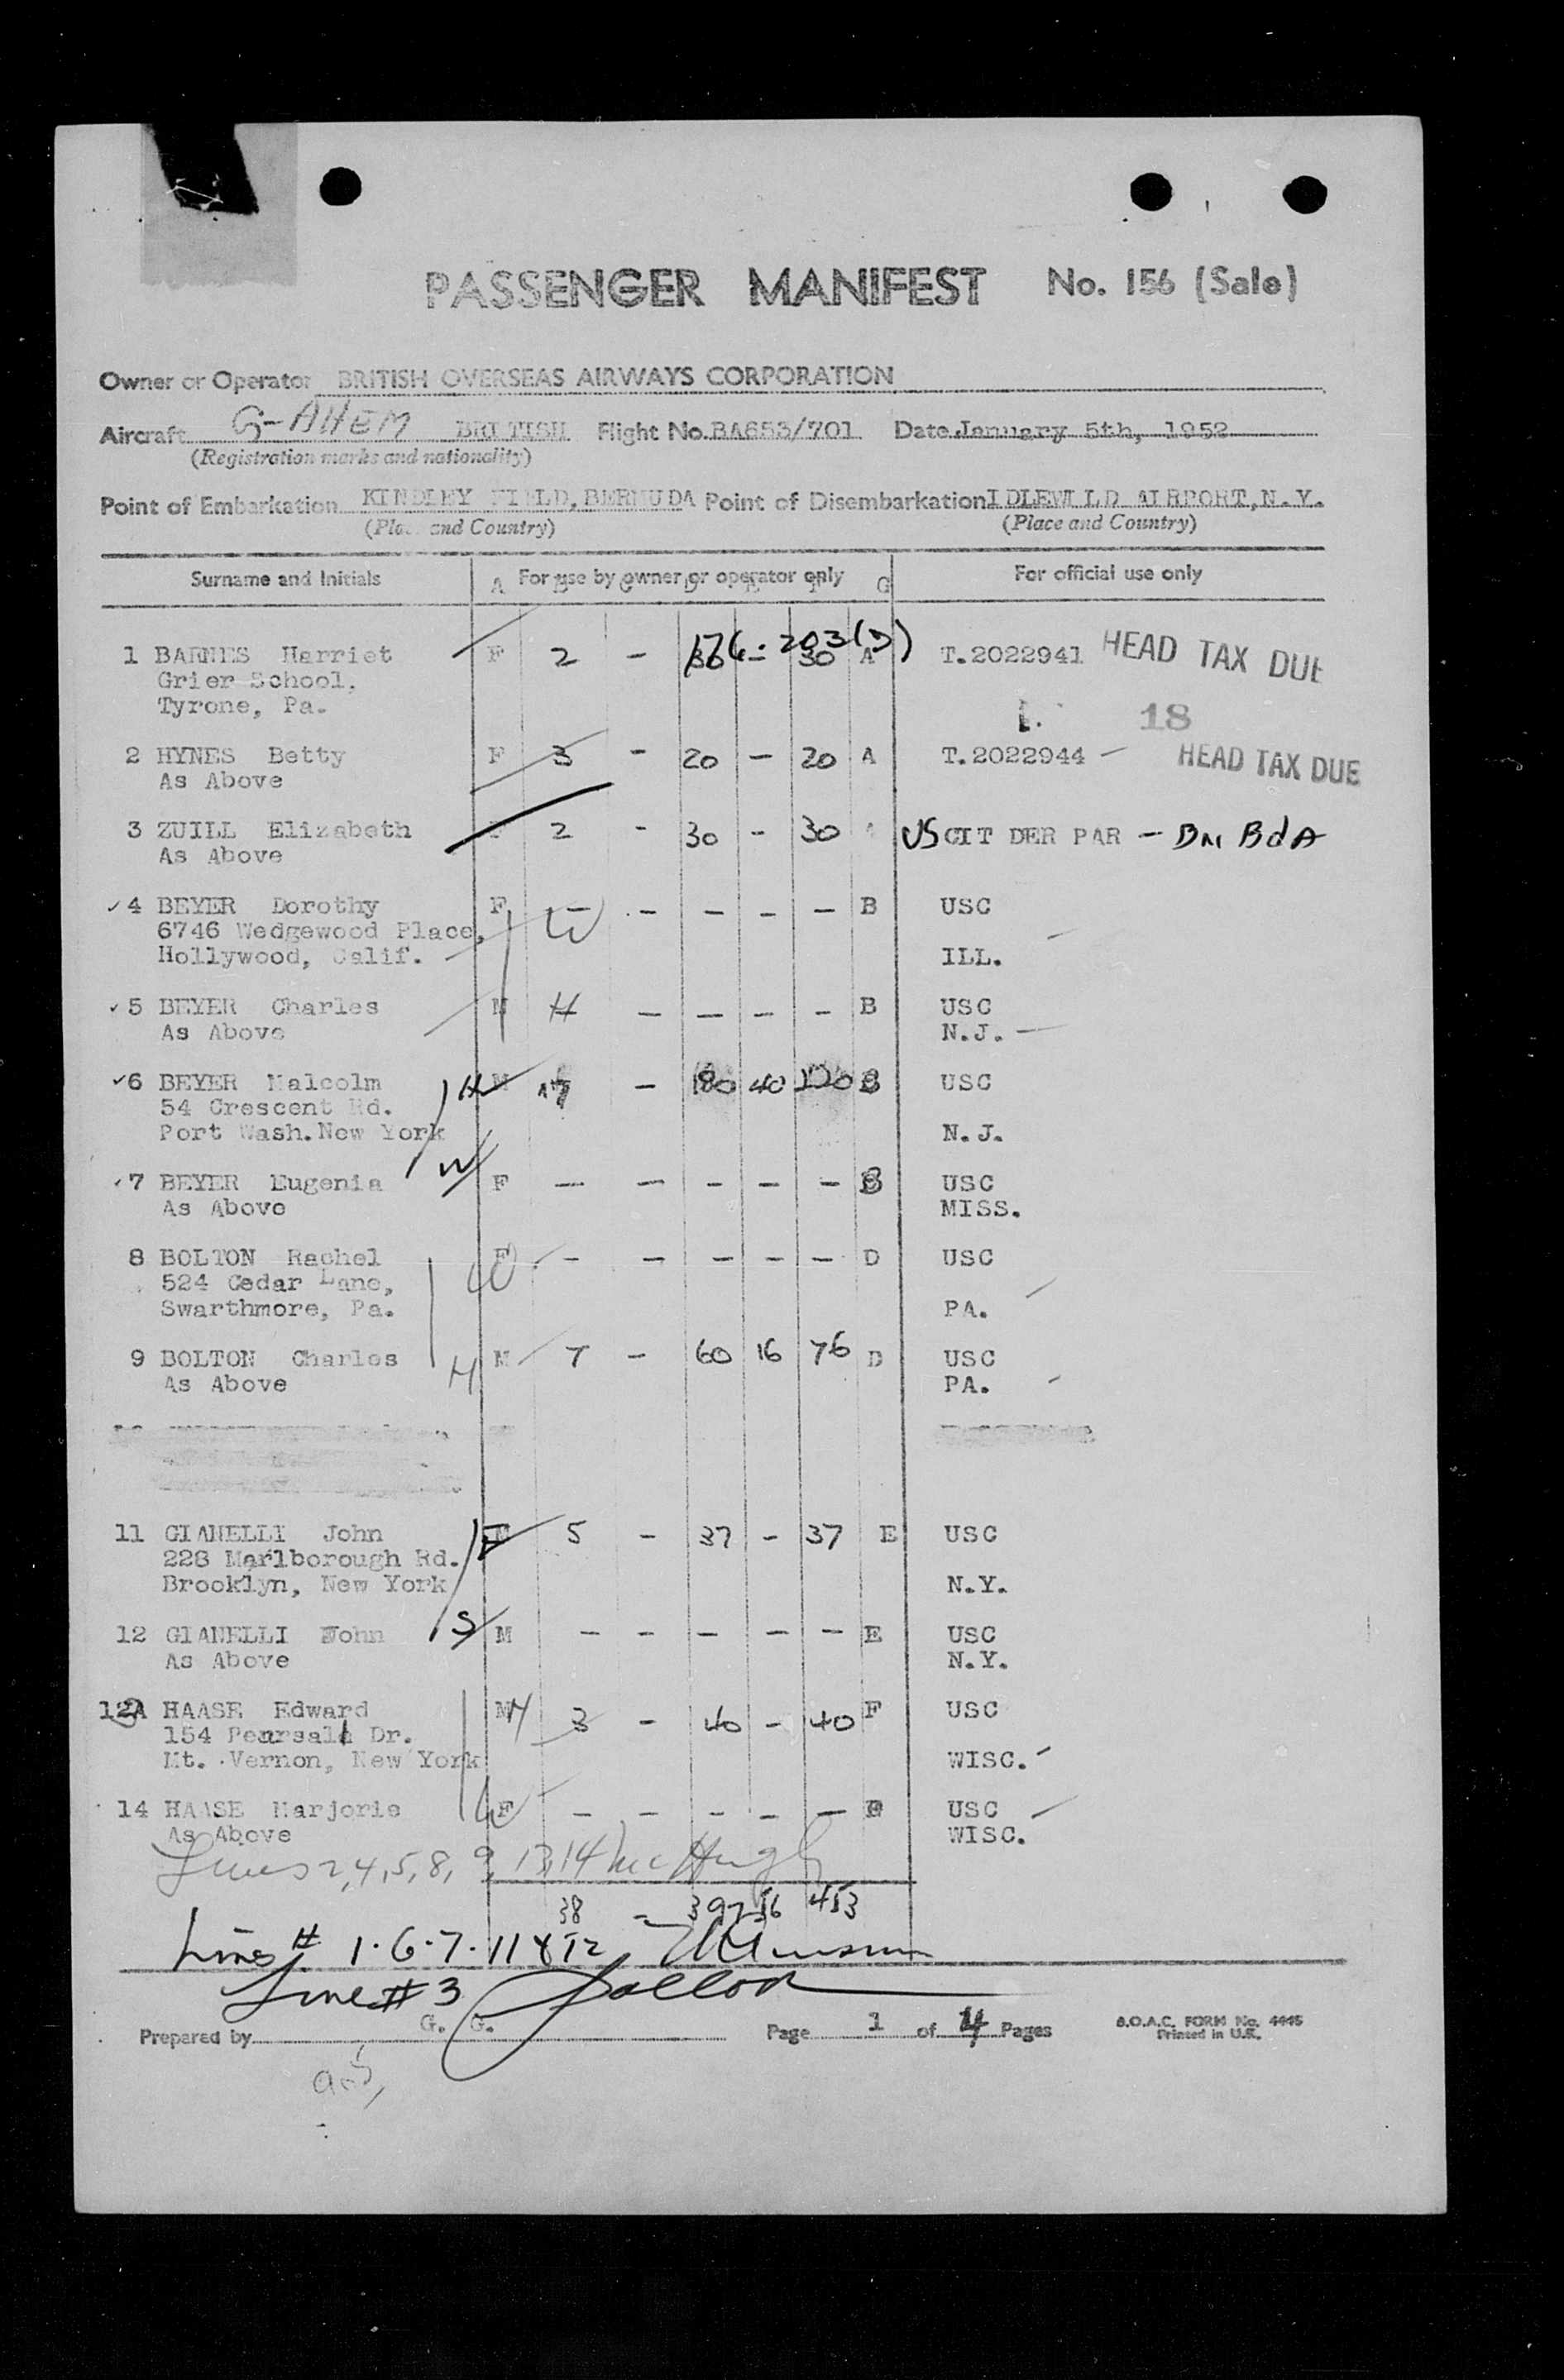 PASSENGER MANIFEST No. 156 (Sale)
Owner or Operator BRITISH OVERSEAS AIRWAYS CORPORATION
Aircraft G-AHEM BRITISH Flight No. BA653/701 Date January 5th, 1952
(Registration marks and nationality)
Point of Embarkation KINDLEY FIELD, BERMUDA Point of Disembarkation IDLEWILD AIRPORT, N.Y.
(Place and Country) (Place and Country)
Surname and Initials For use by owner or operator only For official use only
A B C D E F G
176-203(D)
1 BARNES Harriet F 2 - 30 - 30 A T.2022941 HEAD TAX DUE
Grier School,
Tyrone, Pa.
18
2 HYNES Betty F 3 - 20 - 20 A T.2022944 - HEAD TAX DUE
As Above
3 ZUILL Elizabeth F 2 - 30 - 30 A US CIT DER PAR - BN BdA
As Above
✓4 BEYER Dorothy F W - - - - - B USC
6746 Wedgewood Place,
Hollywood, Calif. ILL.
✓5 BEYER Charles M H - - - - B USC
As Above N.J.
✓6 BEYER Malcolm H M 17 - 180 40 220 B USC
54 Crescent Rd.
Port Wash. New York N.J.
✓7 BEYER Eugenia W F - - - - - B USC
As Above MISS.
8 BOLTON Rachel W F - - - - - D USC
524 Cedar Lane,
Swarthmore, Pa. PA.
9 BOLTON Charles H M 7 - 60 16 76 D USC
As Above PA.
11 GIANELLI John F 5 - 37 - 37 E USC
228 Marlborough Rd.
Brooklyn, New York N.Y.
12 GIANELLI John S M - - - - - E USC
As Above N.Y.
12A HAASE Edward M H 3 - 40 - 40 F USC
154 Pearsall Dr.
Mt. Vernon, New York WISC.
14 HAASE Marjorie W F - - - - - USC
As Above WISC.
Lines 2,4,5,8,9,13,14 McHugh
38 - 397 56 453
Lines # 1.6.7.11 & 12
Line # 3
Prepared by G. G. Page 1 of 4 Pages B.O.A.C. FORM No. 4445
Printed in U.K.